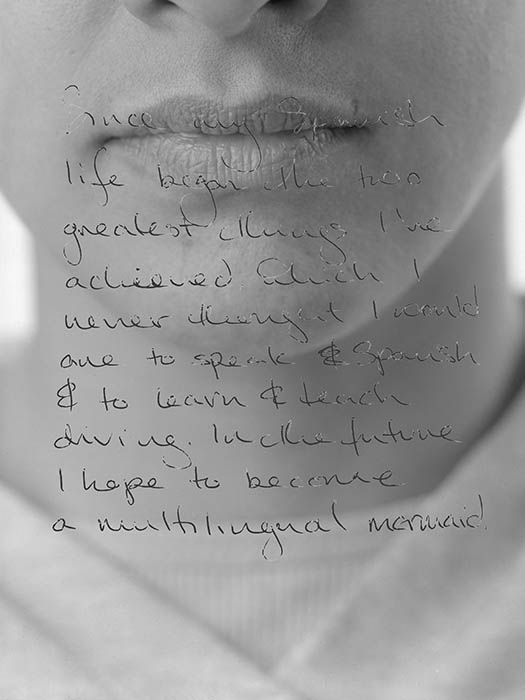 Since my Spanish
life began the two
greatest things I've
achieved, which I
never thought I would
are to speak & Spanish
& to learn & teach
diving. In the future
I hope to become
a multilingual mermaid.